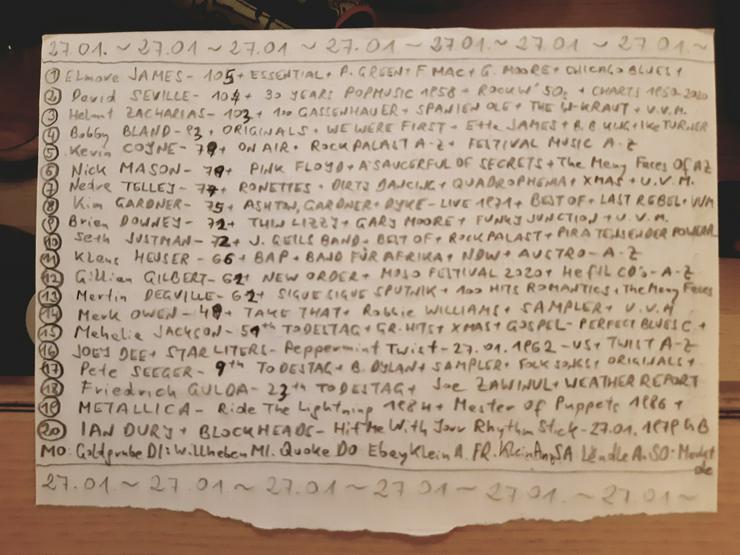 27.01. ~ 27.01 ~ 27.01 ~ 27.01 ~ 27.01 ~ 27.01 ~ 27.01 ~
① Elmore JAMES - 105 + ESSENTIAL + P. GREEN + F MAC + G. MOORE + CHICAGO BLUES +
② David SEVILLE - 104 + 30 YEARS POPMUSIC 1958 + ROCK'N' 50s + CHARTS 1950-2020
③ Helmut ZACHARIAS - 103 + 100 GASSENHAUER + SPANIEN OLE + THE W-KRAUT + U.V.M.
④ Bobby BLAND - 93 + ORIGINALS + WE WERE FIRST + Etta JAMES + B.B KING + Ike TURNER
⑤ Kevin COYNE - 79 + ON AIR + ROCKPALAST A-Z + FESTIVAL MUSIC A-Z
⑥ Nick MASON - 79 + PINK FLOYD + A SAUCERFUL OF SECRETS + The Many Faces Of AZ
⑦ Nedra TELLEY - 77 + RONETTES + DIRTY DANCING + QUADROPHENIA + XMAS + U.V.M.
⑧ Kim GARDNER - 75 + ASHTON, GARDNER + DYKE - LIVE 1971 + BEST OF + LAST REBEL + UVM
⑨ Brian DOWNEY - 72 + THIN LIZZY + GARY MOORE + FUNKY JUNCTION + U.V.M.
⑩ Seth JUSTMAN - 72 + J. GEILS BAND + BEST OF + ROCKPALAST + PIRATENSENDER POWERPL
⑪ Klaus HEUSER - 66 + BAP + BAND FÜR AFRIKA + NDW + AUSTRO - A-Z
⑫ Gillian GILBERT - 62 + NEW ORDER + MOJO FESTIVAL 2020 + He fil CD's - A-Z
⑬ Martin DEGVILLE - 62 + SIGUE SIGUE SPUTNIK + 100 HITS ROMANTICS + The Many Faces
⑭ Mark OWEN - 49 + TAKE THAT + Robbie WILLIAMS + SAMPLER + U.V.M
⑮ Mahalia JACKSON - 51th TODESTAG + GR. HITS + XMAS + GOSPEL - PERFECT BLUES C. +
⑯ JOEY DEE + STARLITERS - Peppermint Twist - 27.01.1962 - US + TWIST A-Z
⑰ Pete SEEGER - 9th TODESTAG + B. DYLAN + SAMPLER + FOLKSONGS + ORIGINALS +
⑱ Friedrich GULDA - 23th TODESTAG + Joe ZAWINUL + WEATHER REPORT
⑲ METALLICA - Ride The Lightning 1984 + Master Of Puppets 1986 +
⑳ IAN DURY + BLOCKHEADS - Hit Me With Your Rhythm Stick - 27.01.1979 GB
MO: Goldgrube DI: Willhaben MI. Quoke DO EbayKlein A. FR. KleinAnz SA Ländle An SO - Markt
de
27.01. ~ 27.01 ~ 27.01 ~ 27.01 ~ 27.01 ~ 27.01 ~ 27.01 ~